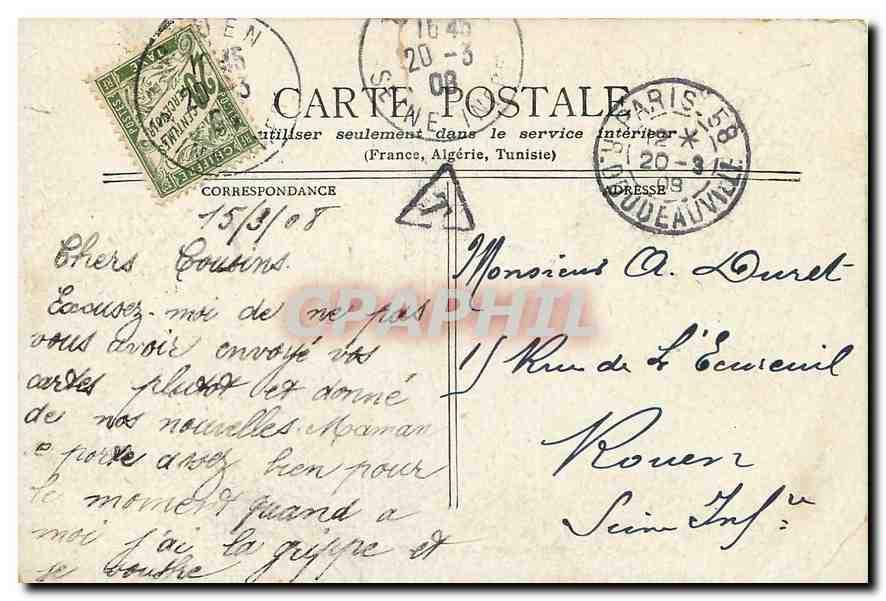 CARTE POSTALE
utiliser seulement dans le service intérieur
(France, Algérie, Tunisie)
CORRESPONDANCE
ADRESSE
ROUEN
20 -3
16 45
20 -3
08
SEINE INFRE
PARIS 58
12 *
20 -3
08
R. DOUDEAUVILLE
T
15/3/08
Chers Cousins.
Excusez-moi de ne pas
vous avoir envoyé vos
cartes plutot et donné
de nos nouvelles. Maman
se porte assez bien pour
le moment quand a
moi j'ai la grippe et
je
Monsieur A. Duret
15 Rue de L'Ecureuil
Rouen
Seine Infre
CPAPHIL